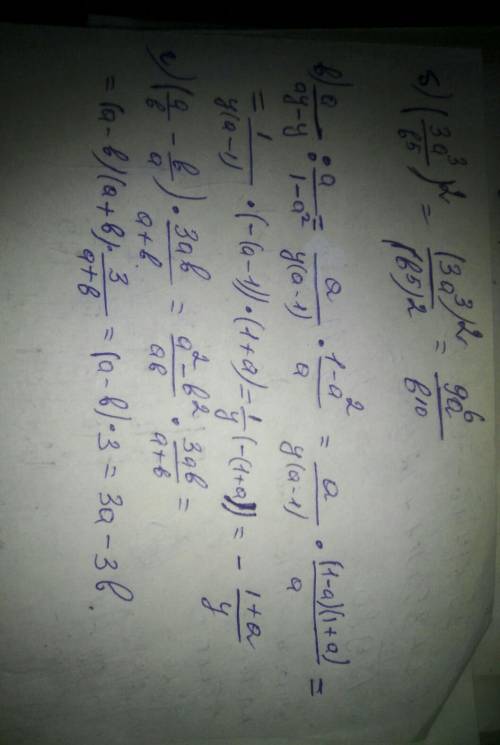 б) (3a³/b5)² = (3a³)²/(b5)² = 9a⁶/b10
в) a/ay-y : a/1-a² = a/y(a-1) · 1-a²/a = a/y(a-1) · (1-a)(1+a)/a =
= 1/y(a-1) · (-(a-1)) · (1+a) = 1/y (-(1+a)) = - 1+a/y
г) (a/b - b/a) · 3ab/a+b = a²-b²/ab · 3ab/a+b =
= (a-b)(a+b) · 3/a+b = (a-b) · 3 = 3a - 3b.